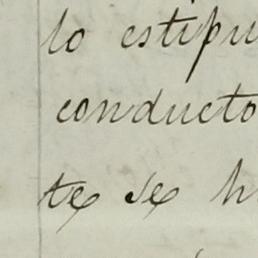 lo estipu
conducto
te se h